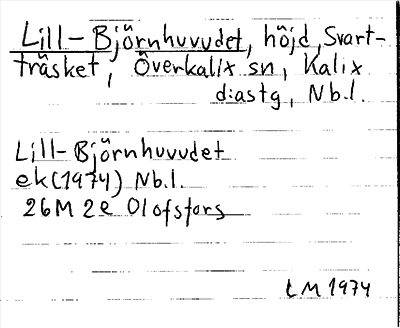 Lill-Björnhuvudet, höjd, Svart-
träsket, Överkalix sn, Kalix
dïastg, Nb.l.
Lill-Björnhuvudet
ek (1974) Nb.l.
26M 2e Olofsfors
LM 1974